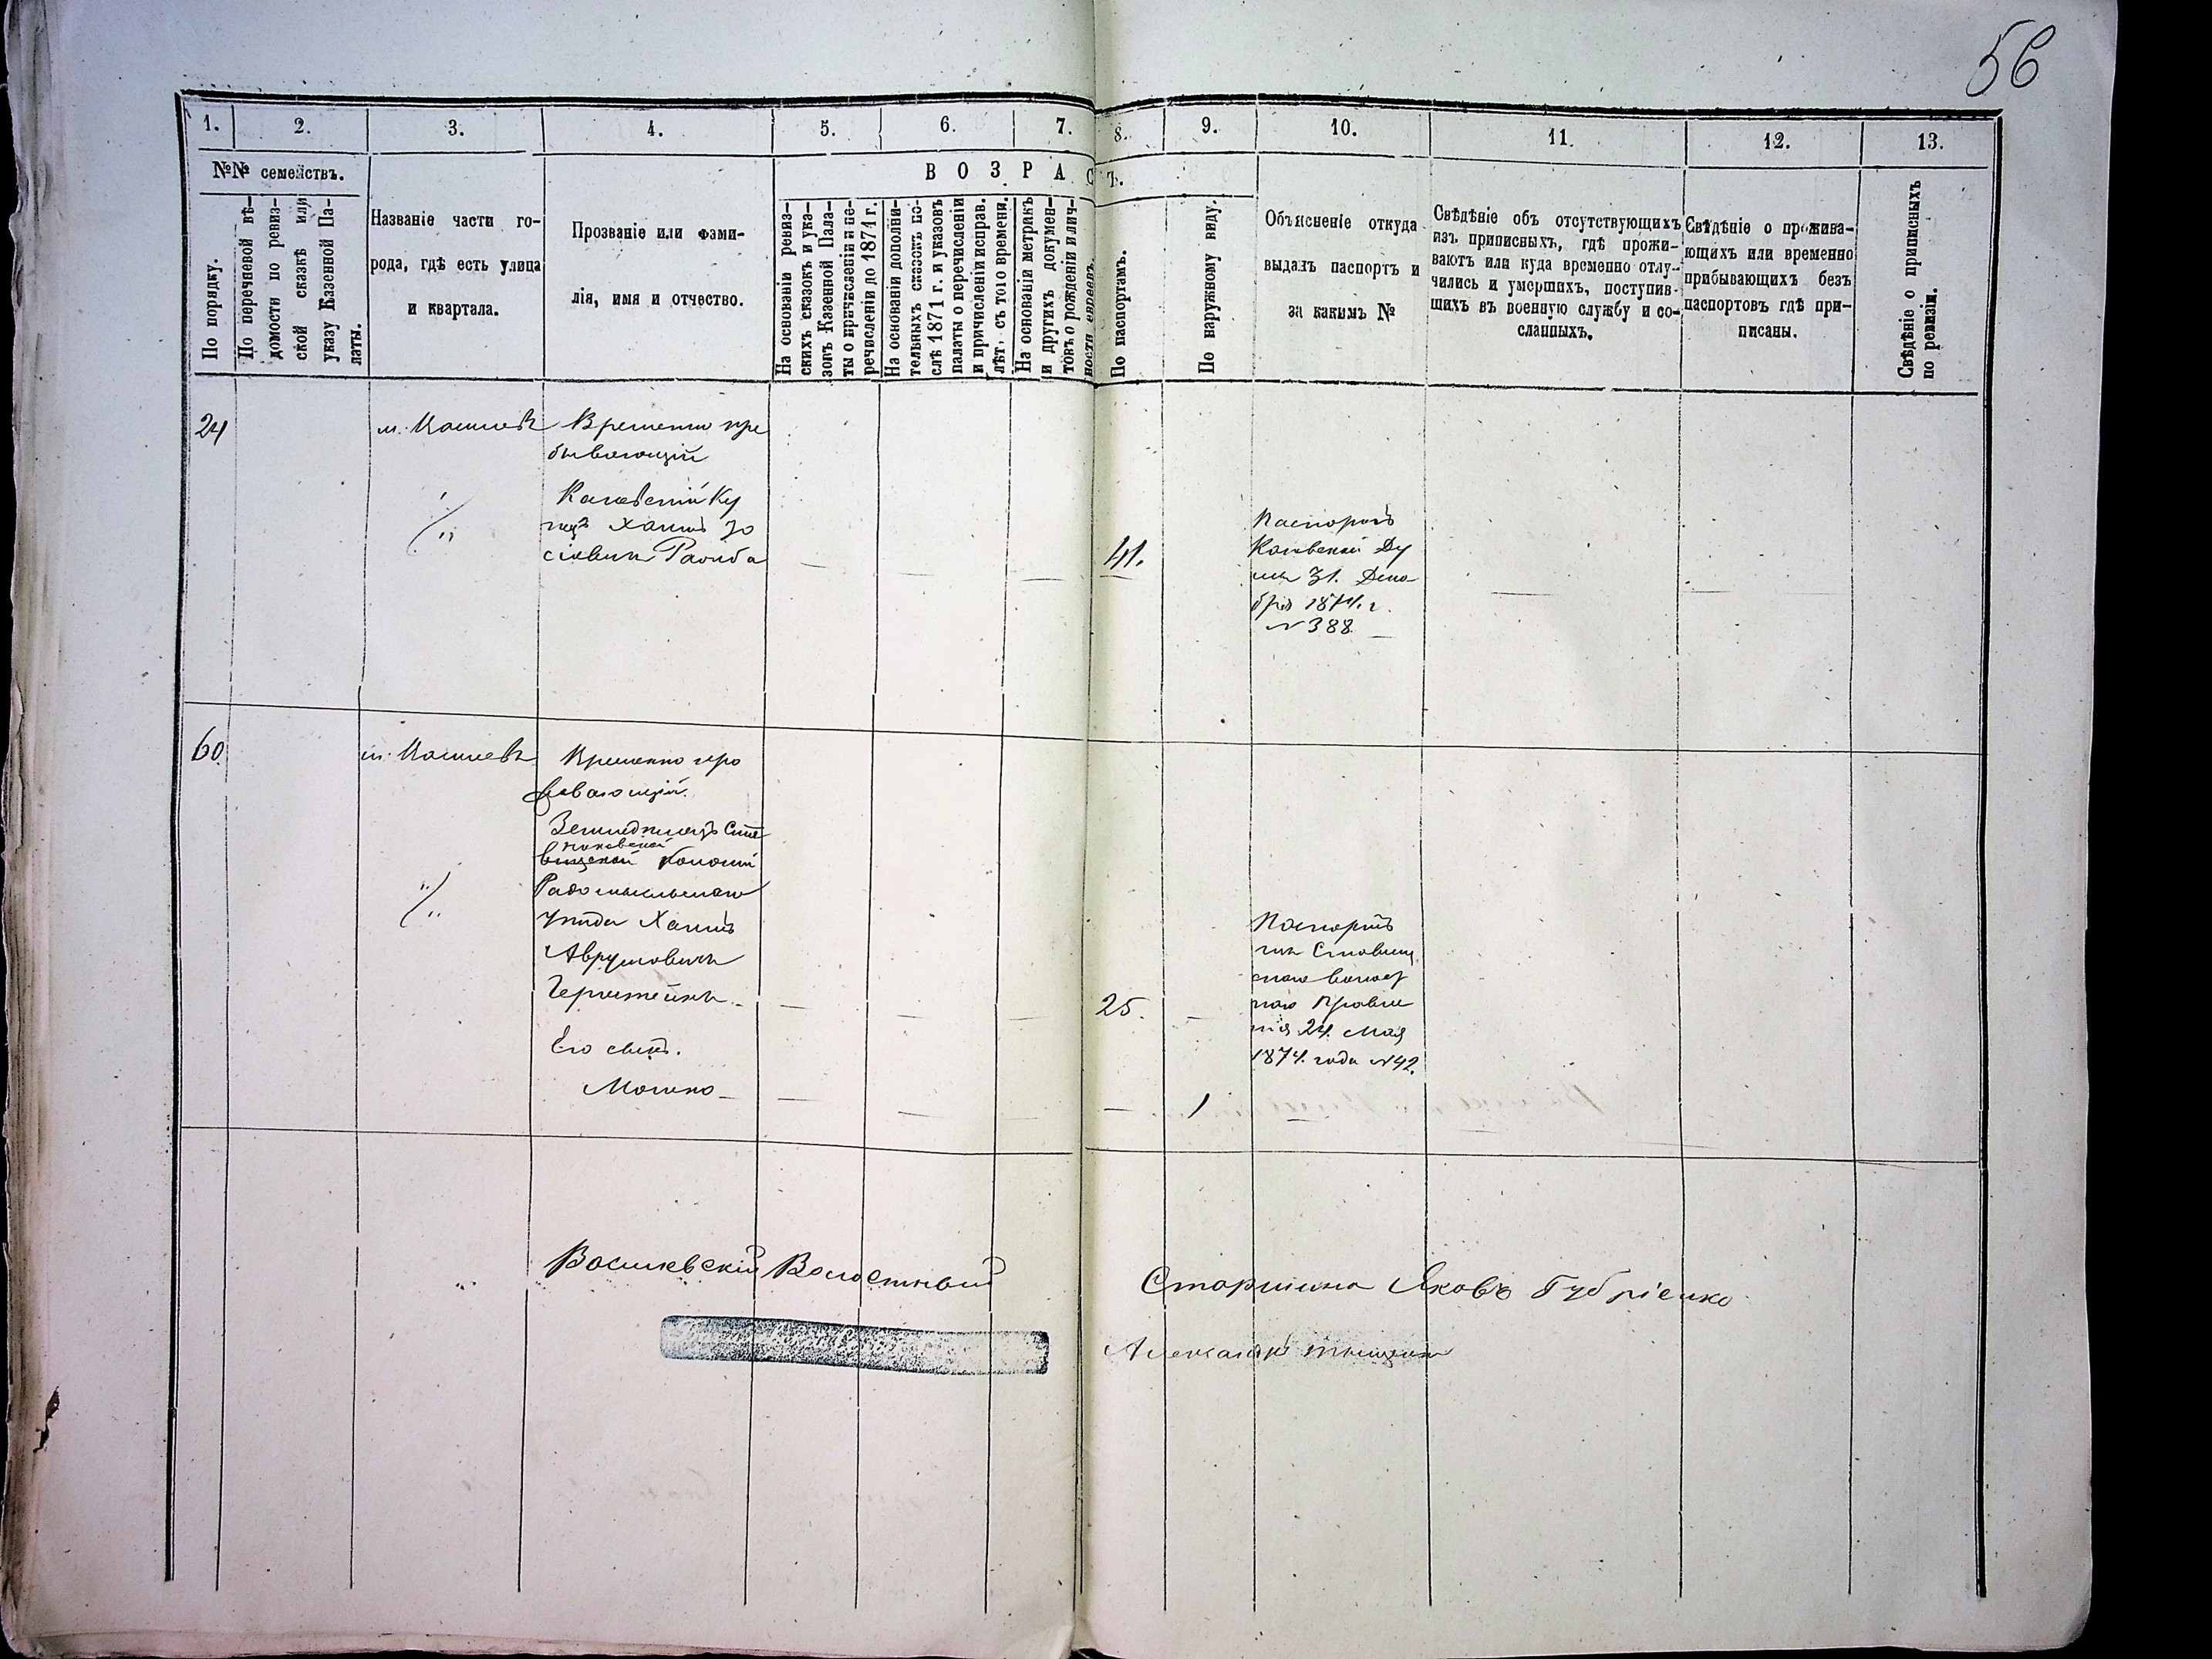 56
1. 2. 3. 4. 5. 6. 7. 8. 9. 10. 11. 12. 13.
№№ семействъ.
По порядку.
По перечневой вѣ-
домости по ревиз-
ской сказкѣ или
указу Казенной Па-
латы.
Названіе части го-
рода, гдѣ есть улица
и квартала.
Прозваніе или фами-
лія, имя и отчество.
ВОЗРАСТЪ.
На основаніи ревиз-
скихъ сказокъ и ука-
зовъ Казенной Пала-
ты о причисленіи и пе-
речисленіи до 1871 г.
На основаніи дополни-
тельныхъ сказокъ по-
слѣ 1871 г. и указовъ
палаты о перечисленіи
и причисленіи исправ.
лѣт. съ того времени.
На основаніи метрикъ
и другихъ докумен-
товъ о рожденіи и лич-
ности евреевъ.
По паспортамъ.
По наружному виду.
Объясненіе откуда
выдалъ паспортъ и
за какимъ №
Свѣдѣніе объ отсутствующихъ
изъ приписныхъ, гдѣ прожи-
ваютъ или куда временно отлу-
чились и умершихъ, поступив-
шихъ въ военную службу и со-
сланныхъ.
Свѣдѣніе о прожива-
ющихъ или временно
прибывающихъ безъ
паспортовъ гдѣ при-
писаны.
Свѣдѣніе о приписныхъ
по ревизіи.
24
м.
Временно пре
бывающій
Каневскій Ку
пецъ Хаимъ Іо
сіовичъ
41.
Паспортъ
Каневской Ду
мы 31. Дека
бря 1874. г.
№ 388
60.
м.
Временно про
живающій.
Земледѣлецъ
колоніи
Радомысльскаго
уѣзда Хаимъ
Аврумовичъ
25.
Паспортъ
изъ Ставищ
скаго волост
наго Правле
нія 24. Мая
1874. года №42.
Его сынъ.
Мошко
1
Васильевскій Волостный Старшина Яковъ Губріенко